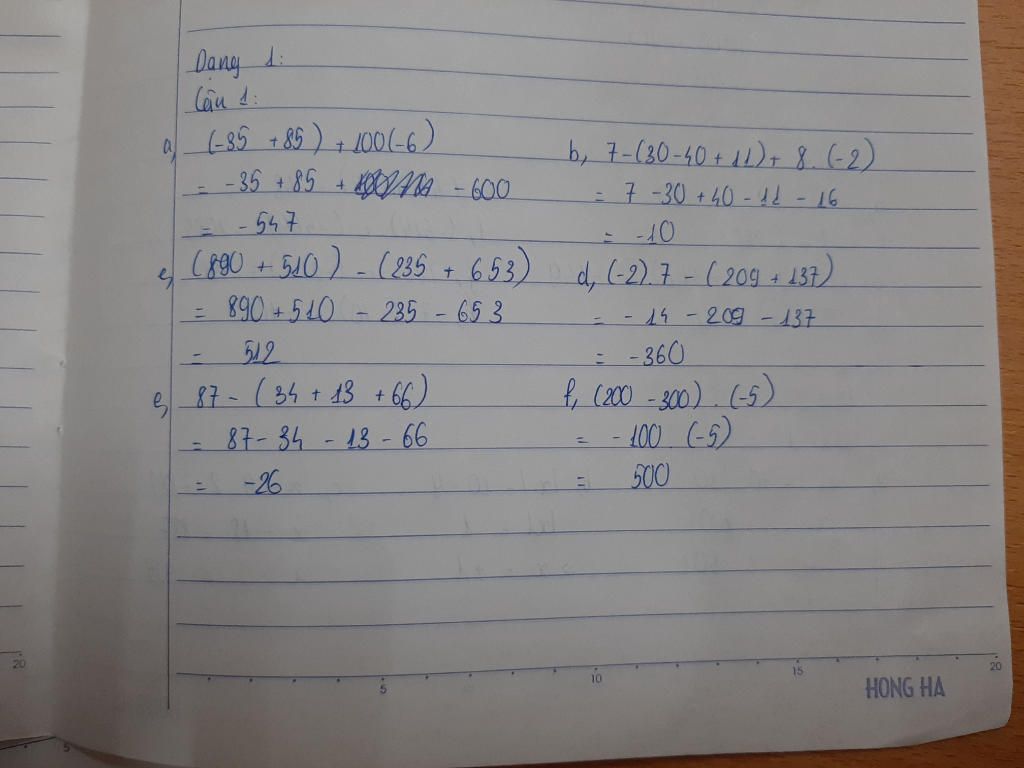 Dạng 1:
Câu 1:
a, (-35 + 85) + 100(-6)
= -35 + 85 + - 600
= -547
b, 7-(30-40+11)+ 8.(-2)
= 7 -30 +40 -11 - 16
= -10
c, (890 + 510) - (235 + 653)
= 890 + 510 - 235 - 653
= 512
d, (-2).7 - (209 + 137)
= - 14 - 209 - 137
= -360
e, 87 - (34 + 13 + 66)
= 87- 34 - 13 - 66
= -26
f, (200 - 300) . (-5)
= - 100 . (-5)
= 500
5 10 15 20
HONG HA
20
5